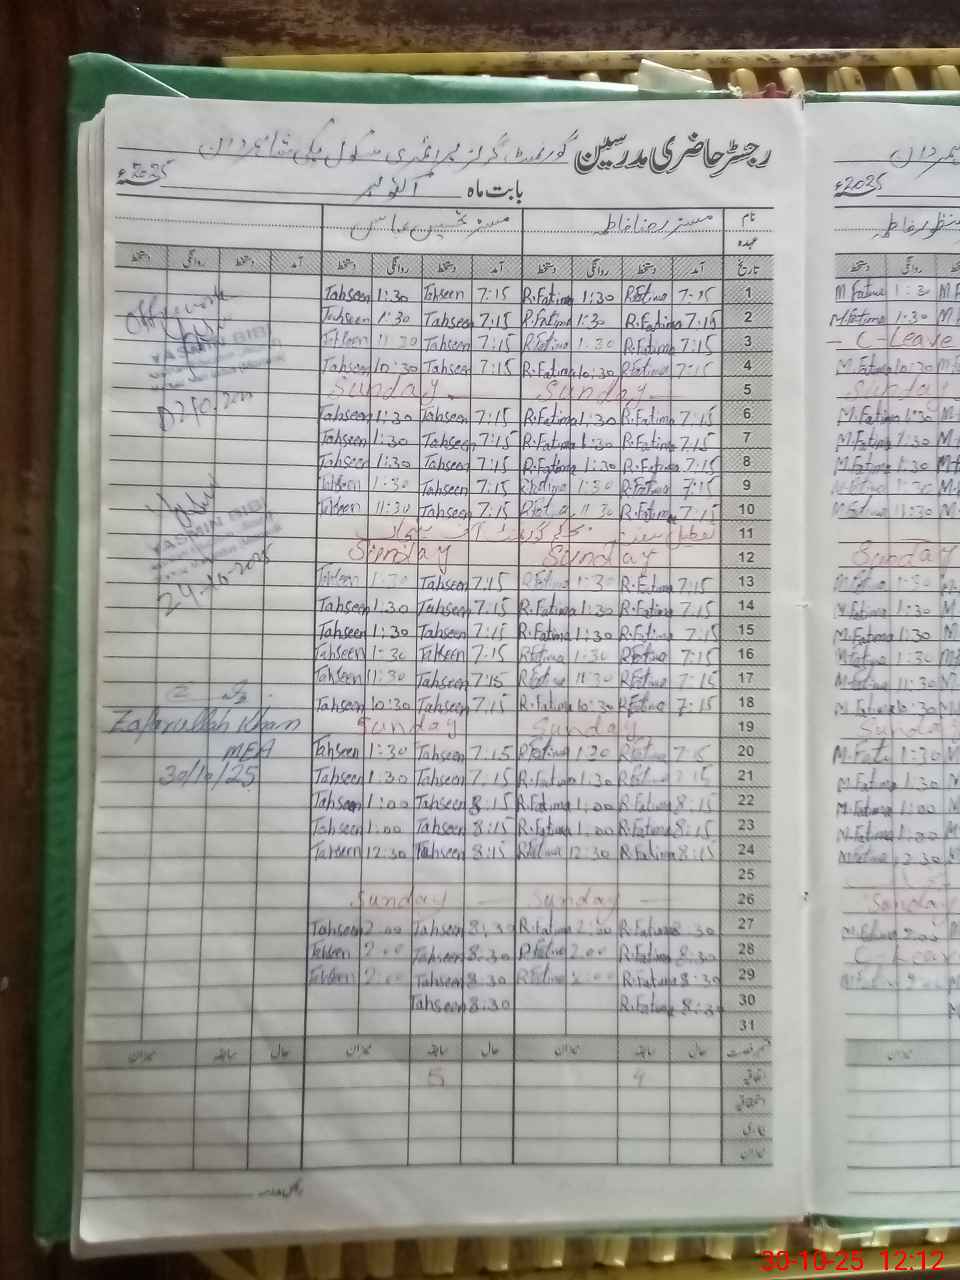 رجسٹر حاضری مدرسین گورنمنٹ گرلز پرائمری سکول
بابت ماہ اکتوبر 2025ء
نام مسز رضنا فاطمہ مسز تحسین عباس
عہدہ
تاریخ آمد دستخط روانگی دستخط آمد دستخط روانگی دستخط آمد دستخط روانگی دستخط
1 7:15 R.Fatima 1:30 R.Fatima 7:15 Tahseen 1:30 Tahseen
2 7:15 R.Fatima 1:30 R.Fatima 7:15 Tahseen 1:30 Tahseen
3 7:15 R.Fatima 1:30 R.Fatima 7:15 Tahseen 11:30 Tahseen
4 7:15 R.Fatima 10:30 R.Fatima 7:15 Tahseen 10:30 Tahseen
5 Sunday Sunday
6 7:15 R.Fatima 1:30 R.Fatima 7:15 Tahseen 1:30 Tahseen
7 7:15 R.Fatima 1:30 R.Fatima 7:15 Tahseen 1:30 Tahseen
8 7:15 R.Fatima 1:30 R.Fatima 7:15 Tahseen 1:30 Tahseen
9 7:15 R.Fatima 1:30 R.Fatima 7:15 Tahseen 1:30 Tahseen
10 7:15 R.Fatima 11:30 R.Fatima 7:15 Tahseen 11:30 Tahseen
11
12 Sunday Sunday
13 7:15 R.Fatima 1:30 R.Fatima 7:15 Tahseen 1:30 Tahseen
14 7:15 R.Fatima 1:30 R.Fatima 7:15 Tahseen 1:30 Tahseen
15 7:15 R.Fatima 1:30 R.Fatima 7:15 Tahseen 1:30 Tahseen
16 7:15 R.Fatima 1:30 R.Fatima 7:15 Tahseen 1:30 Tahseen
17 7:15 R.Fatima 11:30 R.Fatima 7:15 Tahseen 11:30 Tahseen
18 7:15 R.Fatima 10:30 R.Fatima 7:15 Tahseen 10:30 Tahseen
19 Sunday Sunday
20 7:15 R.Fatima 1:30 R.Fatima 7:15 Tahseen 1:30 Tahseen
21 7:15 R.Fatima 1:30 R.Fatima 7:15 Tahseen 1:30 Tahseen
22 8:15 R.Fatima 1:00 R.Fatima 8:15 Tahseen 1:00 Tahseen
23 8:15 R.Fatima 1:00 R.Fatima 8:15 Tahseen 1:00 Tahseen
24 8:15 R.Fatima 12:30 R.Fatima 8:15 Tahseen 12:30 Tahseen
25
26 Sunday Sunday
27 8:30 R.Fatima 2:00 R.Fatima 8:30 Tahseen 2:00 Tahseen
28 8:30 R.Fatima 2:00 R.Fatima 8:30 Tahseen 2:00 Tahseen
29 8:30 R.Fatima 2:00 R.Fatima 8:30 Tahseen 2:00 Tahseen
30 8:30 R.Fatima 8:30 Tahseen
31
حال سابقہ میزان حال سابقہ میزان حال سابقہ میزان
اتفاقی 4 5
بیماری
میزان
YASMIN BIBI
YASMIN BIBI
24-10-2025
Zafarullah Khan
MEA
30/10/25
2025ء
M.Fatima 1:30
M.Fatima 1:30
C-Leave
M.Fatima 10:30
Sunday
M.Fatima 1:30
M.Fatima 1:30
M.Fatima 1:30
M.Fatima 1:30
M.Fatima 11:30
Sunday
M.Fatima 1:30
M.Fatima 1:30
M.Fatima 1:30
M.Fatima 1:30
M.Fatima 11:30
M.Fatima 10:30
Sunday
M.Fati 1:30
M.Fatima 1:30
M.Fatima 1:00
M.Fatima 1:00
M.Fatima
Sunday
M.Fatima 2:00
C-Leave
M.Fatima
میزان
30-10-25 12:12